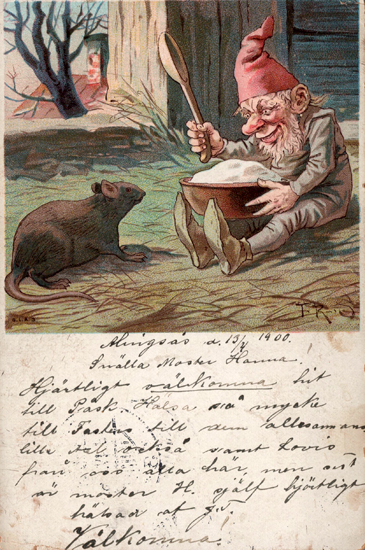 Alingsås d. 13/4 1900.
Snälla Moster Hanna!
Hjärtligt välkomna hit
till Påsk. Hälsa så mycke
till Fasters till dem allesammans
lilla också samt Lovis
från oss alla här, men sist
är moster H. själf hjärtligt
hälsad af
Välkomna!